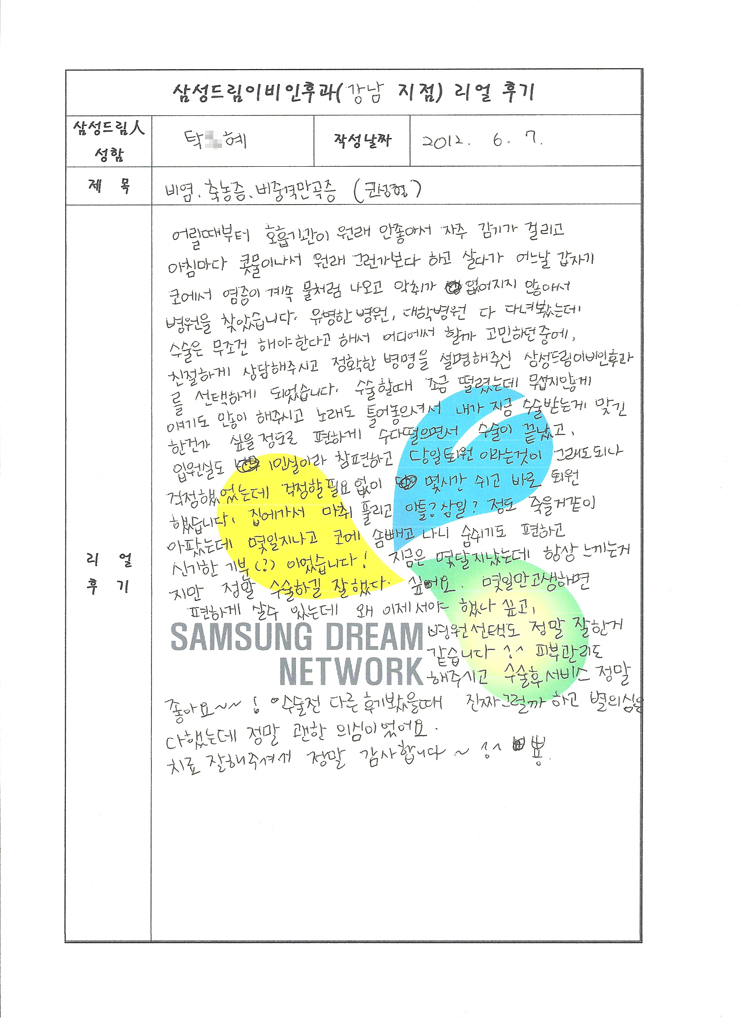 삼성드림이비인후과(강남 지점) 리얼 후기
삼성드림人 성함
탁 혜
작성날짜
2012. 6. 7.
제 목
비염, 축농증, 비중격만곡증 (코성형)
리 얼 후 기
어릴때부터 호흡기관이 원래 안좋아서 자주 감기가 걸리고
아침마다 콧물이나서 원래 그런가보다 하고 살다가 어느날 갑자기
코에서 염증이 계속 물처럼 나오고 악취가 없어지지 않아서
병원을 찾았습니다. 유명한병원, 대학병원 다 다녀봤는데
수술은 무조건 해야한다고 해서 어디에서 할까 고민하던중에,
친절하게 상담해주시고 정확한 병명을 설명해주신 삼성드림이비인후과
를 선택하게 되었습니다. 수술할때 조금 떨렸는데 무섭지않게
얘기도 많이 해주시고 노래도 틀어놓으셔서 내가 지금 수술받는게 맞긴
한건가 싶을정도로 편하게 수다떨으면서 수술이 끝났고,
입원실도 1인실이라 참편하고 당일퇴원 이라는것이 그래도되나
걱정했었는데 걱정할필요 없이 몇시간 쉬고 바로 퇴원
했습니다. 집에가서 마취 풀리고 이틀? 삼일? 정도 죽을거같이
아팠는데 몇일지나고 코에 솜빼고 나니 숨쉬기도 편하고
신기한 기분(?) 이었습니다! 지금은 몇달지났는데 항상 느끼는거
지만 정말 수술하길 잘했다. 싶어요. 몇일만고생하면
편하게 살수 있는데 왜 이제서야 했나 싶고,
병원선택도 정말 잘한거
같습니다 ^^ 피부관리도
해주시고 수술후서비스 정말
좋아요~~! 수술전 다른후기봤을때 진짜그럴까 하고 별의심을
다했는데 정말 괜한 의심이었어요.
치료 잘해주셔서 정말 감사합니다~ ^^
SAMSUNG DREAM
NETWORK